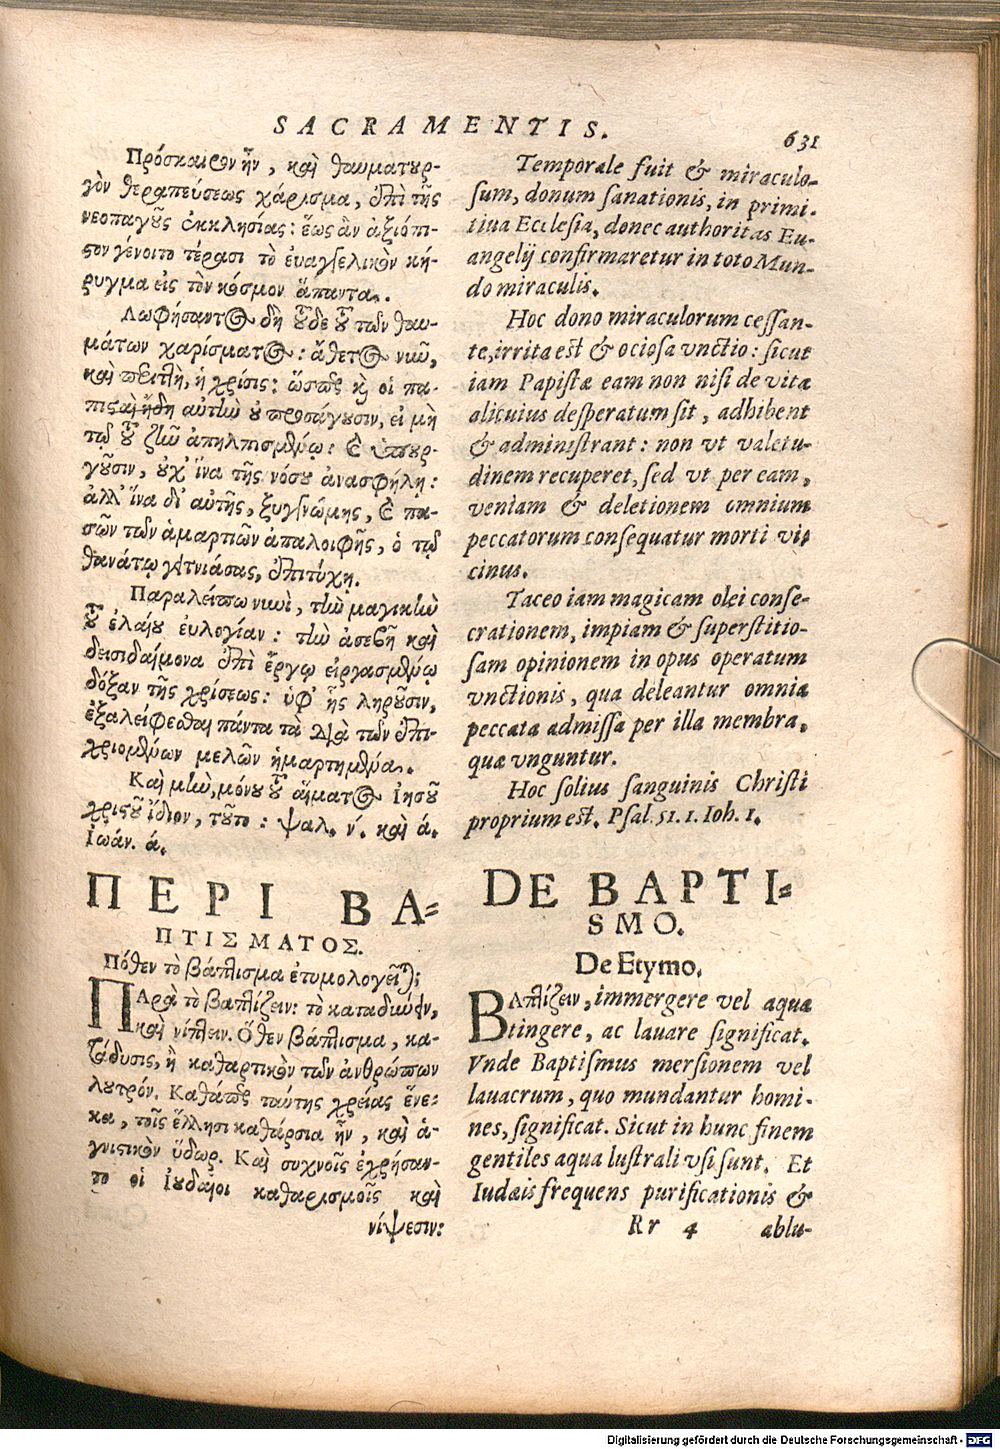 SACRAMENTIS.
631
Πρόσκαιρον ἦν, καὶ θαυματουρ-
γὸν θεραπεύσεως χάρισμα, ἐπὶ τῆς
νεοπαγοῦς ἐκκλησίας: ἕως ἂν ἀξιόπι-
στον γένοιτο τέρασι τὸ ἐυαγγελικὸν κή-
ρυγμα εἰς τὸν κόσμον ἅπαντα.
Λωφήσαντος δὴ τοῦδε τοῦ τῶν θαυ-
μάτων χαρίσματος: ἄθετος νιῦ,
καὶ περιττὴ, ἡ χρίσις: ὥσπερ καὶ οἱ πα-
πισταὶ ἤδη αὐτὴν οὐ προσάγουσιν, εἰ μὴ
τῷ τοῦ ζῆν ἀπηλπισμένῳ: καὶ ὑπουρ-
γοῦσιν, οὐχ' ἵνα τῆς νόσου ἀνασφήλῃ:
ἀλλ' ἵνα δι' αὐτῆς, ξυγγνώμης, καὶ πα-
σῶν τῶν ἁμαρτιῶν ἀπαλοιφῆς, ὁ τῷ
θανάτῳ γειτνιάσας, ἐπιτύχῃ.
Παραλείπω νυνὶ, τὴν μαγικὴν
τοῦ ἐλαίου ἐυλογίαν: τὴν ἀσεβῆ καὶ
δεισιδαίμονα ἐπὶ ἔργῳ εἰργασμένῳ
δόξαν τῆς χρίσεως: ὑφ' ἧς ληροῦσιν,
ἐξαλείφεσθαι πάντα τὰ διὰ τῶν ἐπι-
χριομένων μελῶν ἡμαρτημένα.
Καὶ μὴν, μόνου τοῦ αἵματος Ἰησοῦ
χριστοῦ ἴδιον, τοῦτο: ψαλ. ν'. καὶ ά.
Ἰωάν. ά.
ΠΕΡΙ ΒΑ-
ΠΤΙΣΜΑΤΟΣ.
Πόθεν τὸ βάπτισμα ἐτυμολογεῖται;
ΠΑρὰ τὸ βαπτίζειν: τὸ καταδύειν,
καὶ νίπτειν. Ὅθεν βάπτισμα, κα-
τάδυσις, ἢ καθαρτικὸν τῶν ἀνθρώπων
λουτρόν. Καθάπερ ταύτης χρείας ἕνε-
κα, τοῖς ἕλλησι καθάρσια ἦν, καὶ ἁ-
γνιστικὸν ὕδωρ. Καὶ συχνοῖς ἐχρήσαν-
το οἱ Ἰουδαῖοι καθαρισμοῖς καὶ
νίψεσιν:
Temporale fuit & miraculo-
sum, donum sanationis, in primi-
tiua Ecclesia, donec authoritas Eu-
angelij confirmaretur in toto Mun-
do miraculis.
Hoc dono miraculorum cessan-
te, irrita est & ociosa vnctio: sicut
iam Papistæ eam non nisi de vita
alicuius desperatum sit, adhibent
& administrant: non vt valetu-
dinem recuperet, sed vt per eam,
veniam & deletionem omnium
peccatorum consequatur morti vi-
cinus.
Taceo iam magicam olei conse-
crationem, impiam & superstitio-
sam opinionem in opus operatum
vnctionis, qua deleantur omnia
peccata admissa per illa membra,
quæ vnguntur.
Hoc solius sanguinis Christi
proprium est. Psal. 51. 1. Ioh. 1.
DE BAPTI-
SMO.
De Etymo.
ΒΑπτίζειν, immergere vel aqua
tingere, ac lauare significat.
Vnde Baptismus mersionem vel
lauacrum, quo mundantur homi-
nes, significat. Sicut in hunc finem
gentiles aqua lustrali vsi sunt. Et
Iudæis frequens purificationis &
Rr 4 ablu-
Digitalisierung gefördert durch die Deutsche Forschungsgemeinschaft - DFG